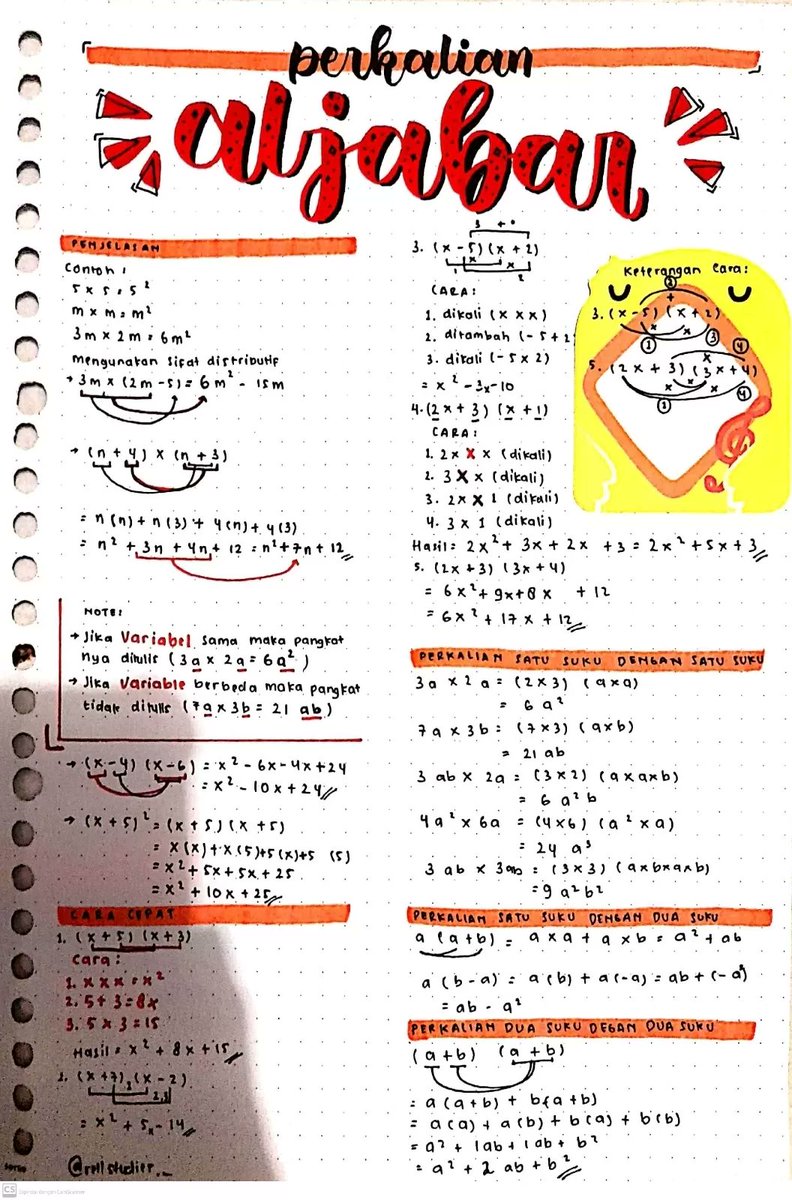 perkalian
aljabar
PENJELASAN
Contoh :
5 x 5 = 5²
m x m = m²
3m x 2m = 6m²
mengunakan sifat distributif
→ 3m x (2m - 5) = 6m² - 15m
→ (n + 4) x (n + 3)
= n(n) + n(3) + 4(n) + 4(3)
= n² + 3n + 4n + 12 = n² + 7n + 12
NOTE:
→ Jika Variabel sama maka pangkat
nya ditulis (3a x 2a = 6a²)
→ Jika Variable berbeda maka pangkat
tidak ditulis (7a x 3b = 21 ab)
→ (x - 4) (x - 6) = x² - 6x - 4x + 24
= x² - 10x + 24
→ (x + 5)² = (x + 5) (x + 5)
= x(x) + x(5) + 5(x) + 5 (5)
= x² + 5x + 5x + 25
= x² + 10x + 25
CARA CEPAT
1. (x + 5) (x + 3)
Cara :
1. x x x = x²
2. 5 + 3 = 8x
3. 5 x 3 = 15
Hasil = x² + 8x + 15
2. (x + 7) (x - 2)
= x² + 5x - 14
@rell studier._
3. (x - 5) (x + 2)
CARA :
1. dikali (x x x)
2. ditambah (-5 + 2
3. dikali (-5 x 2)
= x² - 3x - 10
4. (2x + 3) (x + 1)
CARA :
1. 2x x x (dikali)
2. 3 x x (dikali)
3. 2x x 1 (dikali)
4. 3 x 1 (dikali)
Hasil = 2x² + 3x + 2x + 3 = 2x² + 5x + 3
5. (2x + 3) (3x + 4)
= 6x² + 9x + 8x + 12
= 6x² + 17x + 12
Keterangan Cara :
②
+
3. (x - 5) (x + 2)
x x
① ③ ④
x
5. (2x + 3) (3x + 4)
x x
① ④
PERKALIAN SATU SUKU DENGAN SATU SUKU
3a x 2a = (2x3) (axa)
= 6 a²
7a x 3b = (7x3) (axb)
= 21 ab
3 ab x 2a = (3x2) (axaxb)
= 6 a²b
4a² x 6a = (4x6) (a² x a)
= 24 a³
3 ab x 3ab = (3x3) (axbxaxb)
= 9 a²b²
PERKALIAN SATU SUKU DENGAN DUA SUKU
a (a+b) = a x a + a x b = a² + ab
a (b - a) = a(b) + a(-a) = ab + (-a²
= ab - a²
PERKALIAN DUA SUKU DEGAN DUA SUKU
(a + b) (a + b)
= a(a+b) + b(a+b)
= a(a) + a(b) + b(a) + b(b)
= a² + 1ab + 1ab + b²
= a² + 2 ab + b²
CS